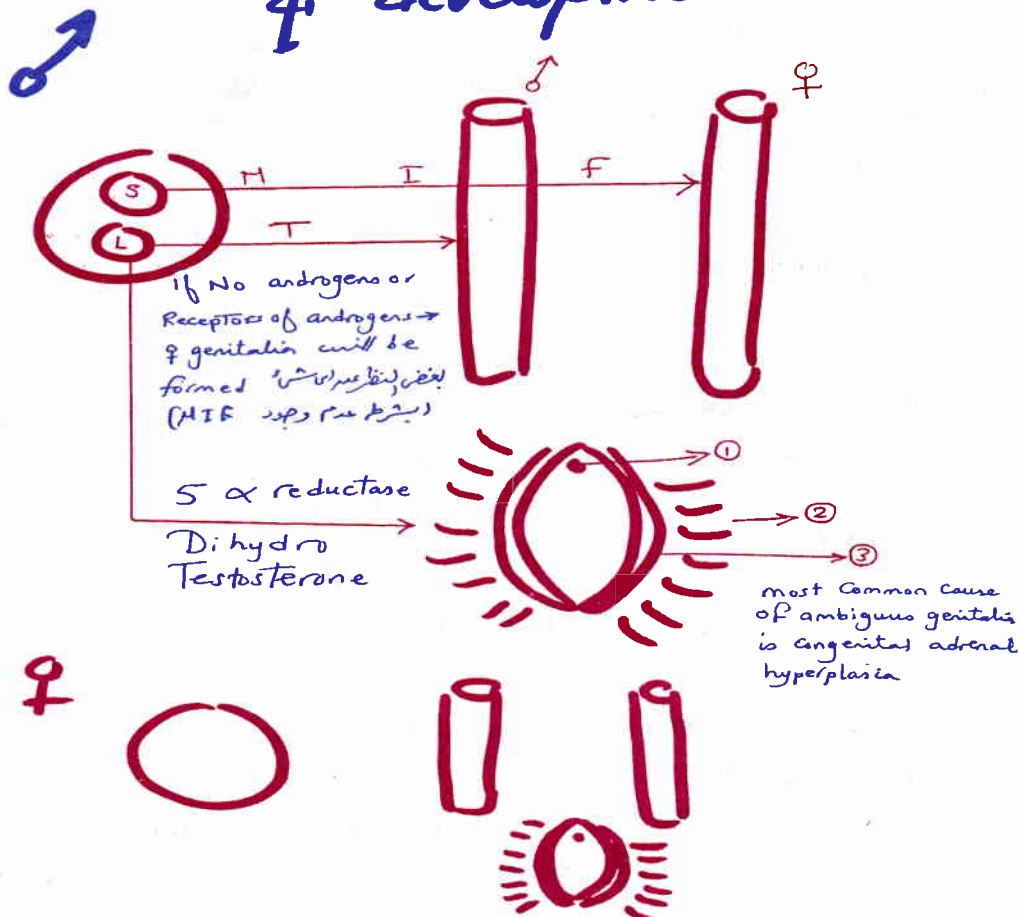 ♀ development
♂
♂
♀
S
M I F
L
T
if No androgens or
Receptors of androgens →
♀ genitalia will be
formed بغض النظر عن اى شئ
(بشرط عدم وجود MIF
①
5 α reductase
②
Dihydro
③
Testosterone
most Common Cause
of ambiguus genitalia
is congenital adrenal
hyperplasia
♀